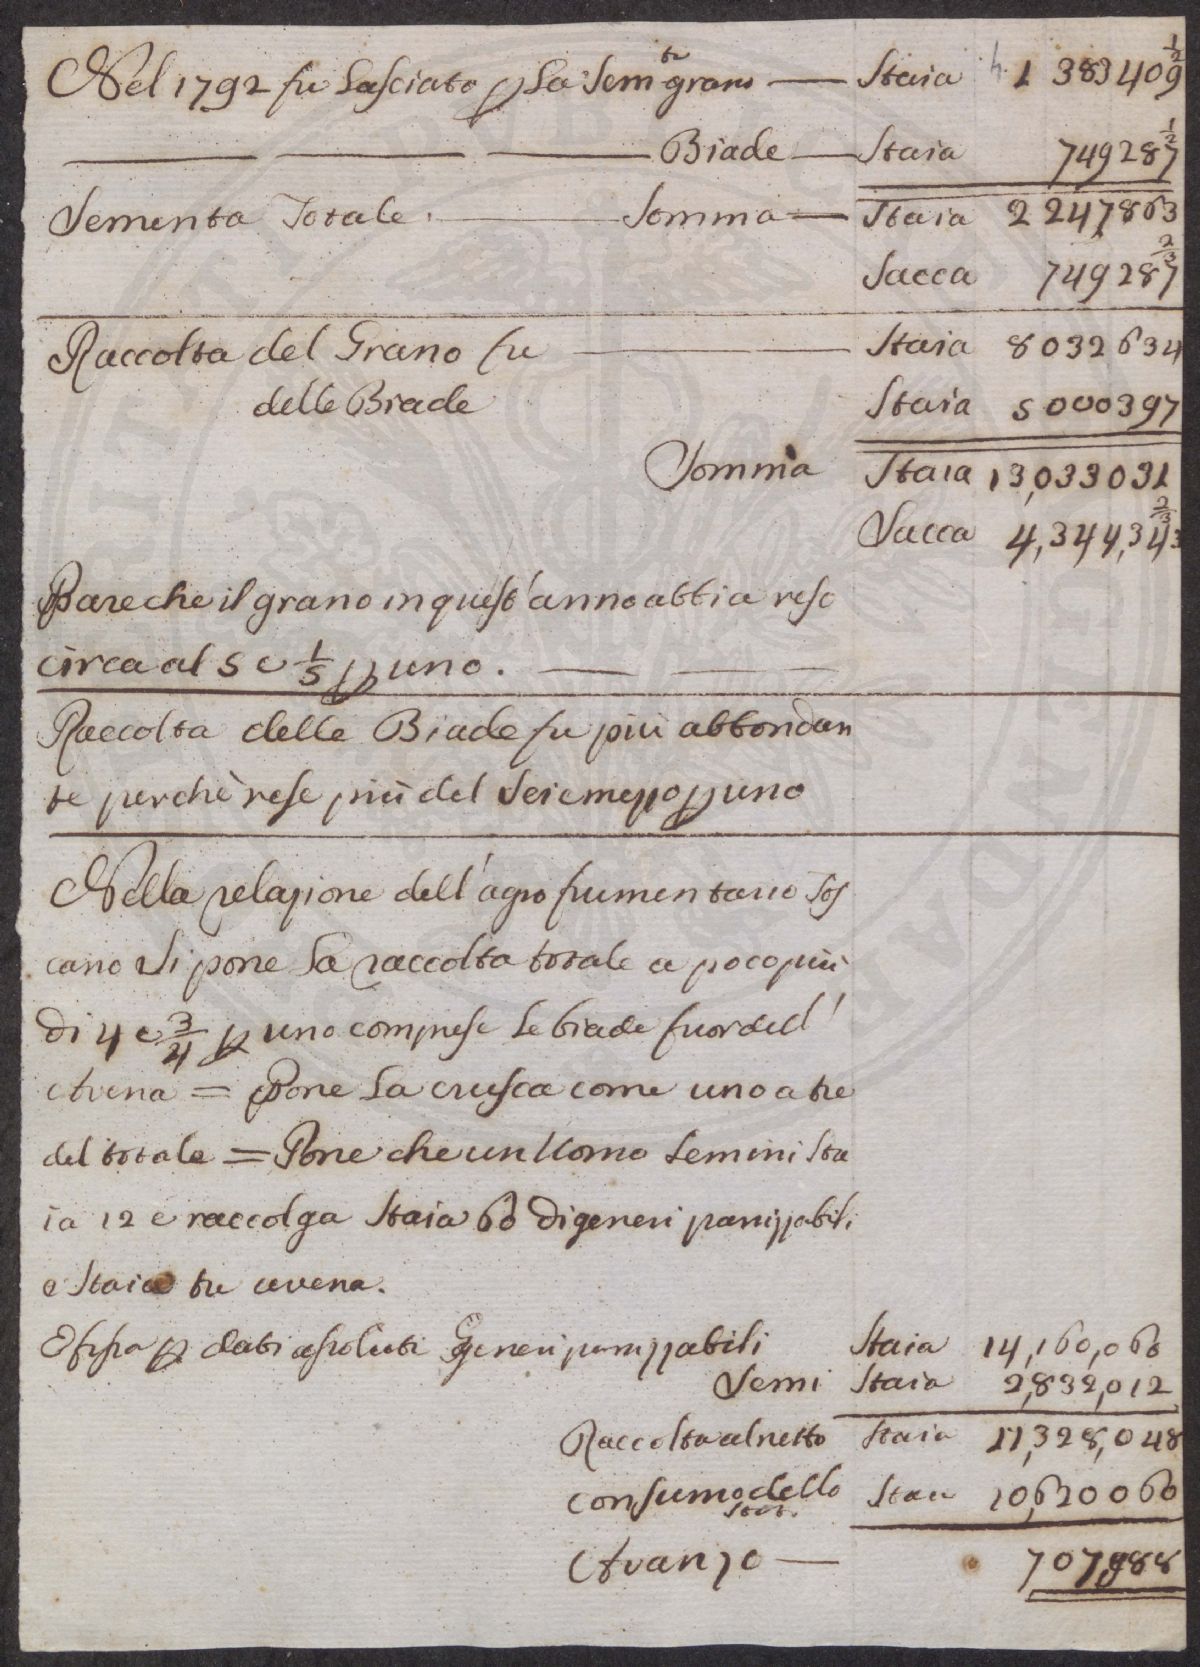 Nel 1792 fu Lasciato p La Sem.ta grano — Staia 1 383409 1/2
Biade — Staia 749287 1/2
Sementa Totale. — Somma — Staia 2247863
Sacca 749287 2/3
Raccolta del Grano fu — Staia 8032634
delle Biade Staia 5000397
Somma Staia 13,033031
Sacca 4,344,343 2/3
Pare che il grano in quest'anno abbia reso
circa al 5 e 1/5 p uno. —
Raccolta delle Biade fu più abbondan
te perchè rese più del Sei e mezzo p uno
Nella relazione dell'agro frumentario Tos
cano Si pone La raccolta totale a poco più
di 4 e 3/4 p uno comprese Le biade fuor dell'
Avena = Pone La crusca come uno a tre
del totale = Pone che un Uomo Semini Sta
ia 12 e raccolga Staia 60 di generi panizzabili
e Staia tre avena.
p dati assoluti Generi panizzabili Staia 14,160,060
Semi Staia 2,832,012
Raccolta al netto Staia 11,328,048
Consumo dello Stat. Staia 10,620060
Avanzo — 707,988